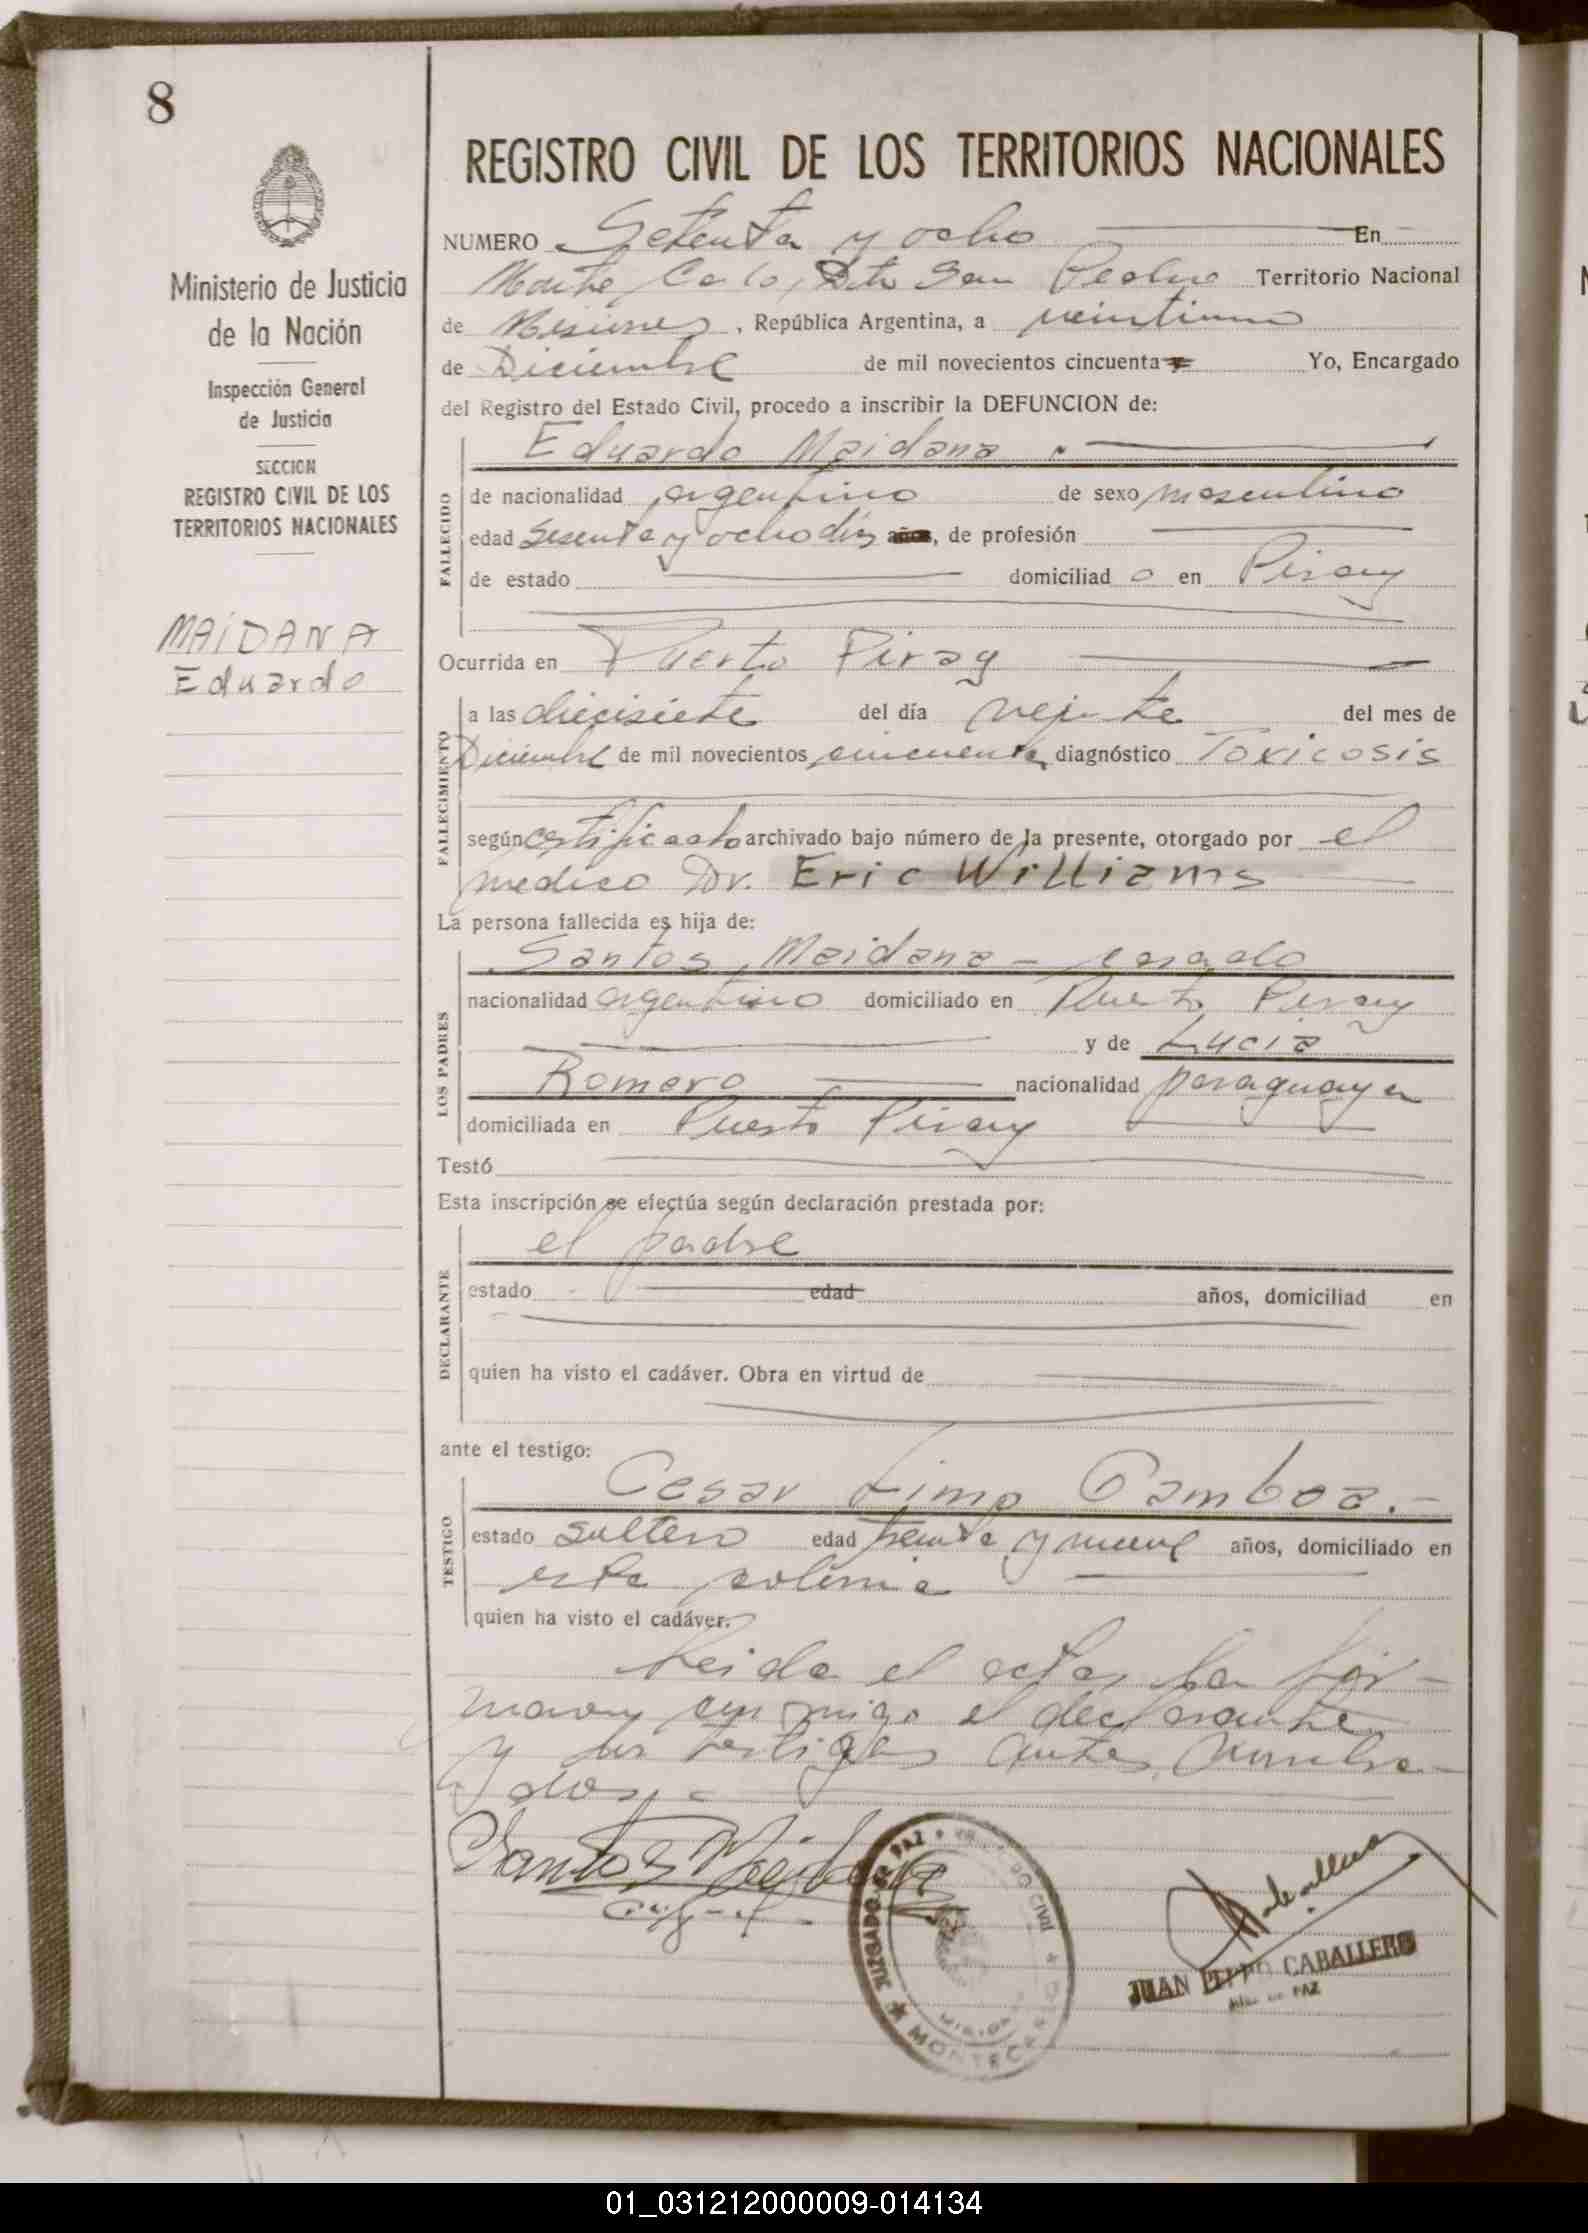 8
Ministerio de Justicia
de la Nación
Inspección General
de Justicia
SECCION
REGISTRO CIVIL DE LOS
TERRITORIOS NACIONALES
MAIDANA
Eduardo
REGISTRO CIVIL DE LOS TERRITORIOS NACIONALES
NUMERO Setenta y ocho En
Monte Carlo, Dto San Pedro Territorio Nacional
de Misiones, República Argentina, a veintiuno
de Diciembre de mil novecientos cincuenta y Yo, Encargado
del Registro del Estado Civil, procedo a inscribir la DEFUNCION de:
Eduardo Maidana.
FALLECIDO
de nacionalidad argentino de sexo masculino
edad sesenta y ocho días años, de profesión
de estado domiciliad o en Piray
Ocurrida en Puerto Piray
FALLECIMIENTO
a las diecisiete del día veinte del mes de
Diciembre de mil novecientos cincuenta, diagnóstico Toxicosis
según certificado archivado bajo número de la presente, otorgado por el
medico Dr. Eric Williams
La persona fallecida es hija de:
LOS PADRES
Santos Maidana - casado
nacionalidad argentino domiciliado en Puerto Piray
y de Lucia
Romero nacionalidad paraguaya
domiciliada en Puerto Piray
Testó
Esta inscripción se efectúa según declaración prestada por:
DECLARANTE
el padre
estado edad años, domiciliad en
quien ha visto el cadáver. Obra en virtud de
ante el testigo:
TESTIGO
Cesar Limo Gamboa.-
estado soltero edad treinta y nueve años, domiciliado en
esta colonia
quien ha visto el cadáver.
Leida el acta, la fir-
maron conmigo el declarante
y los testigos antes nombra-
dos.-
Santos Maidana
JUZGADO DE PAZ
CIVIL
MONTECARLO
JUAN PEDRO CABALLERO
PAZ
01_031212000009-014134